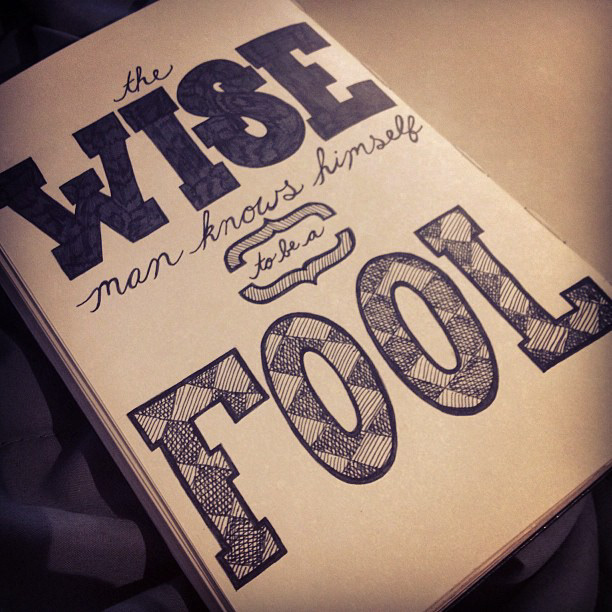 the
WISE
man knows himself
to be a
FOOL